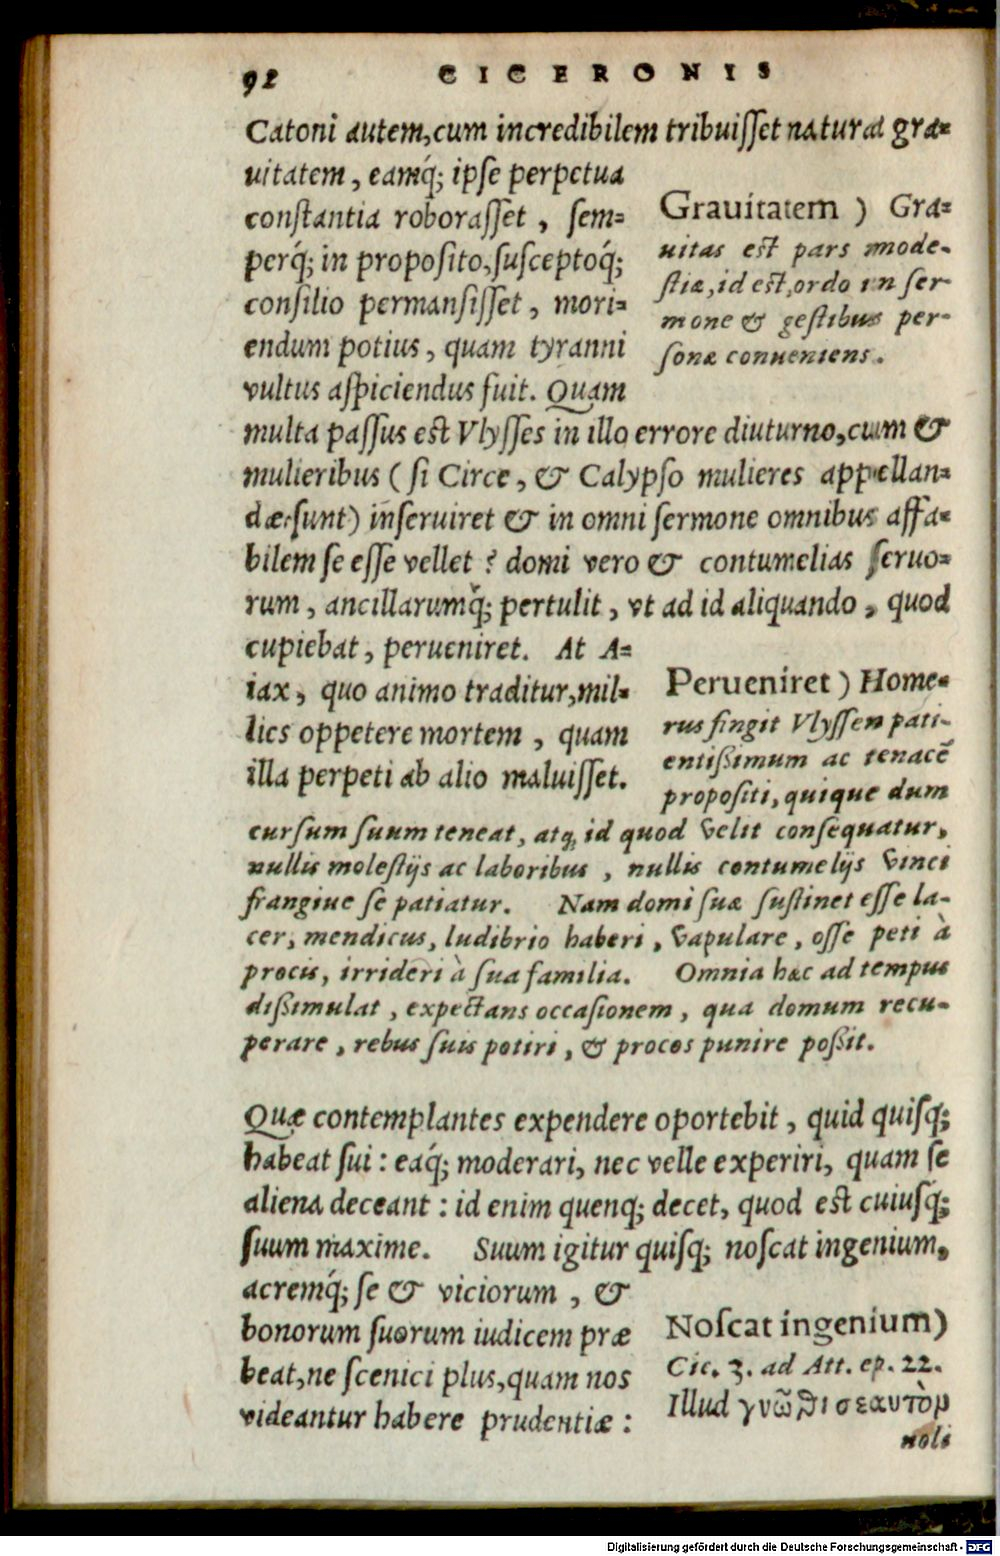 92 CICERONIS
Catoni autem, cum incredibilem tribuiſſet natura gra-
uitatem, eamq́; ipſe perpetua
conſtantia roboraſſet, ſem-
perq́; in propoſito, ſuſceptoq́;
conſilio permanſiſſet, mori-
endum potius, quam tyranni
vultus aſpiciendus fuit. Quam
Grauitatem ) Gra-
uitas est pars mode-
ſtiæ, id est, ordo in ſer-
mone & geſtibus per-
ſonæ conueniens.
multa paſſus est Vlyſſes in illo errore diuturno, cum &
mulieribus ( ſi Circe, & Calypſo mulieres appellan-
dæ ſunt) inſeruiret & in omni ſermone omnibus affa-
bilem ſe eſſe vellet ? domi vero & contumelias ſeruo-
rum, ancillarumq́; pertulit, vt ad id aliquando, quod
cupiebat, perueniret. At A-
iax, quo animo traditur, mil-
lies oppetere mortem, quam
illa perpeti ab alio maluiſſet.
Perueniret ) Home-
rus fingit Vlyſſen pati-
entißimum ac tenacē
propoſiti, quique dum
curſum ſuum teneat, atq; id quod velit conſequatur,
nullis moleſtijs ac laboribus, nullis contumelijs vinci
frangiue ſe patiatur. Nam domi ſuæ ſuſtinet eſſe la-
cer, mendicus, ludibrio haberi, vapulare, oſſe peti à
procis, irrideri à ſua familia. Omnia hæc ad tempus
dißimulat, expectans occaſionem, qua domum recu-
perare, rebus ſuis potiri, & procos punire poßit.
Quæ contemplantes expendere oportebit, quid quiſq;
habeat ſui : eaq́; moderari, nec velle experiri, quam ſe
aliena deceant : id enim quenq; decet, quod est cuiuſq́;
ſuum maxime. Suum igitur quiſq; noſcat ingenium,
acremq́; ſe & viciorum, &
bonorum ſuorum iudicem præ
beat, ne ſcenici plus, quam nos
videantur habere prudentiæ :
Noſcat ingenium)
Cic. 3. ad Att. ep. 22.
Illud γνῶθι σεαυτὸμ
noli
Digitalisierung gefördert durch die Deutsche Forschungsgemeinschaft - DFG